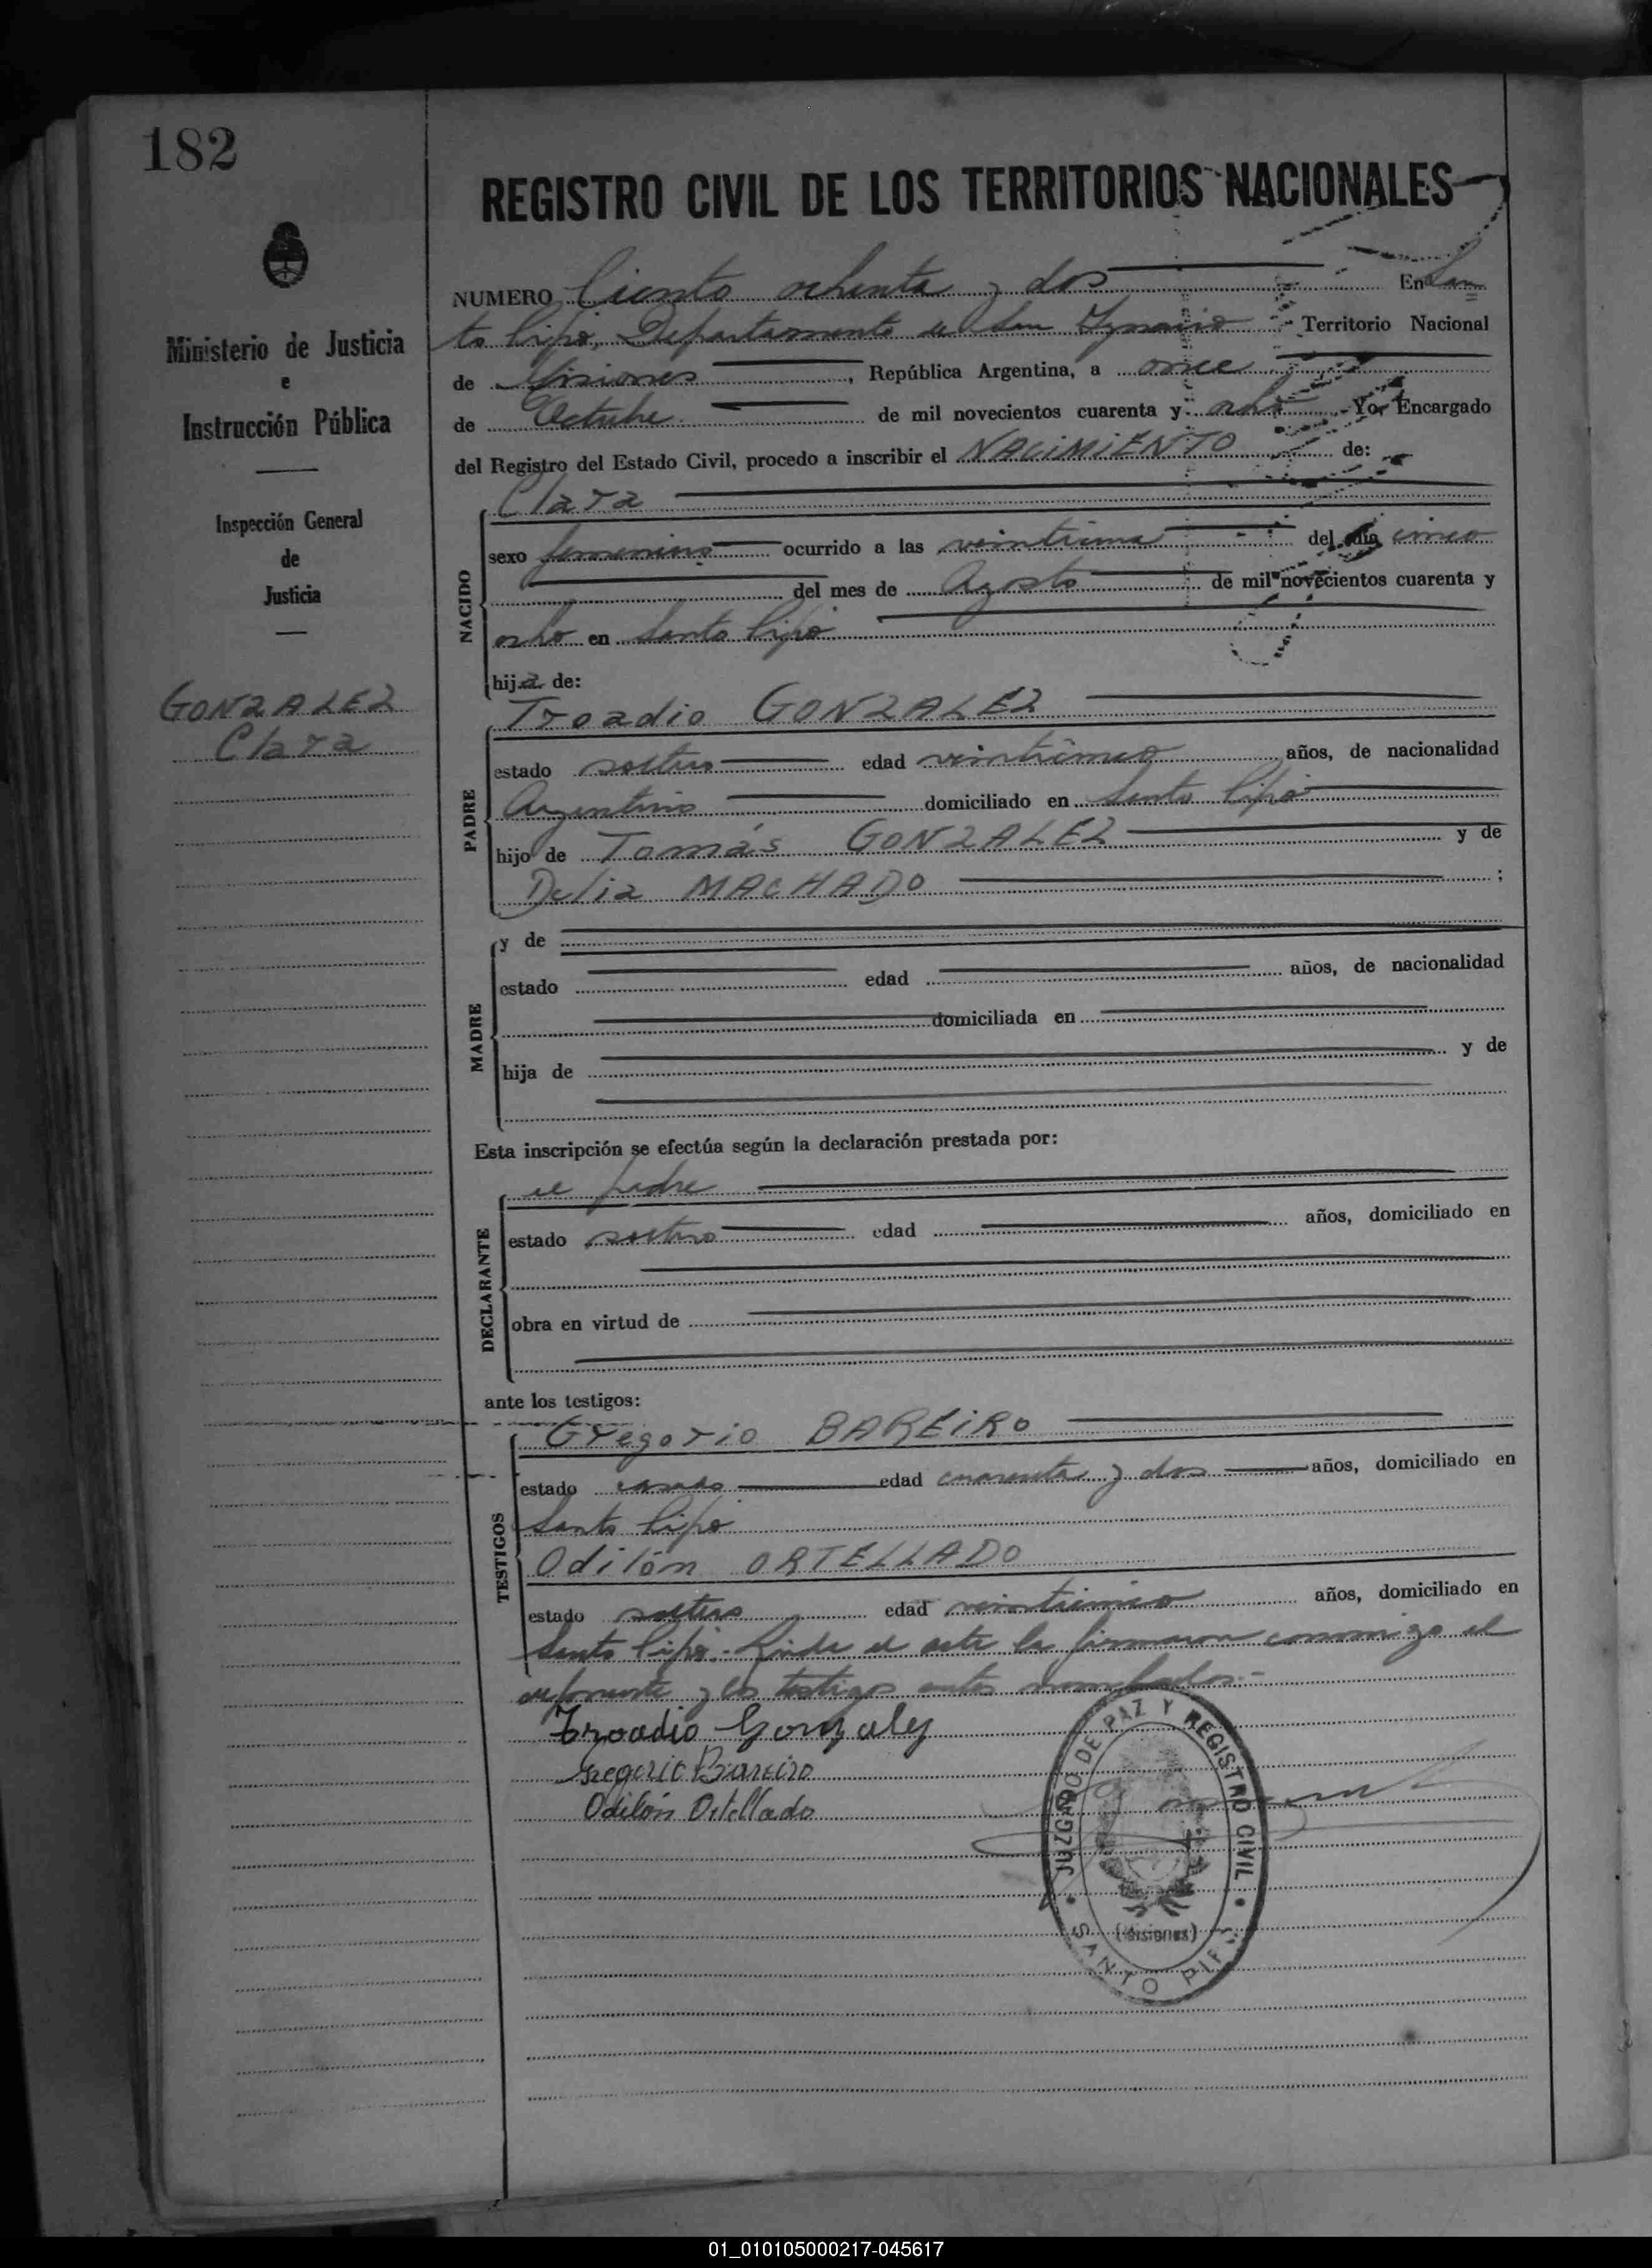 182
REGISTRO CIVIL DE LOS TERRITORIOS NACIONALES
Ministerio de Justicia
e
Instrucción Pública
Inspección General
de
Justicia
GONZALEZ
Clara
NUMERO Ciento ochenta y dos En San
to Pipó, Departamento de San Ignacio Territorio Nacional
de Misiones, República Argentina, a once
de Octubre de mil novecientos cuarenta y ocho Yo, Encargado
del Registro del Estado Civil, procedo a inscribir el NACIMIENTO de:
NACIDO
Clara
sexo femenino ocurrido a las del día cinco
del mes de Agosto de mil novecientos cuarenta y
ocho en Santo Pipó
hija de:
PADRE
Troadio GONZALEZ
estado soltero edad veinticinco años, de nacionalidad
Argentino domiciliado en Santo Pipó
hijo de Tomás GONZALEZ y de
Delia MACHADO ;
MADRE
y de
estado edad años, de nacionalidad
domiciliada en
hija de y de
Esta inscripción se efectúa según la declaración prestada por:
DECLARANTE
el padre
estado soltero edad años, domiciliado en
obra en virtud de
ante los testigos:
TESTIGOS
Gregorio BAREIRO
estado casado edad cuarenta y dos años, domiciliado en
Santo Pipó
Odilón ORTELLADO
estado soltero edad veinticinco años, domiciliado en
Santo Pipó. Leída el acta la firmaron conmigo el
exponente y los testigos antes nombrados.-
Troadio Gonzalez
Gregorio Bareiro
Odilón Ortellado
JUZGADO DE PAZ Y REGISTRO CIVIL
(Misiones)
SANTO PIPÓ
01_010105000217-045617